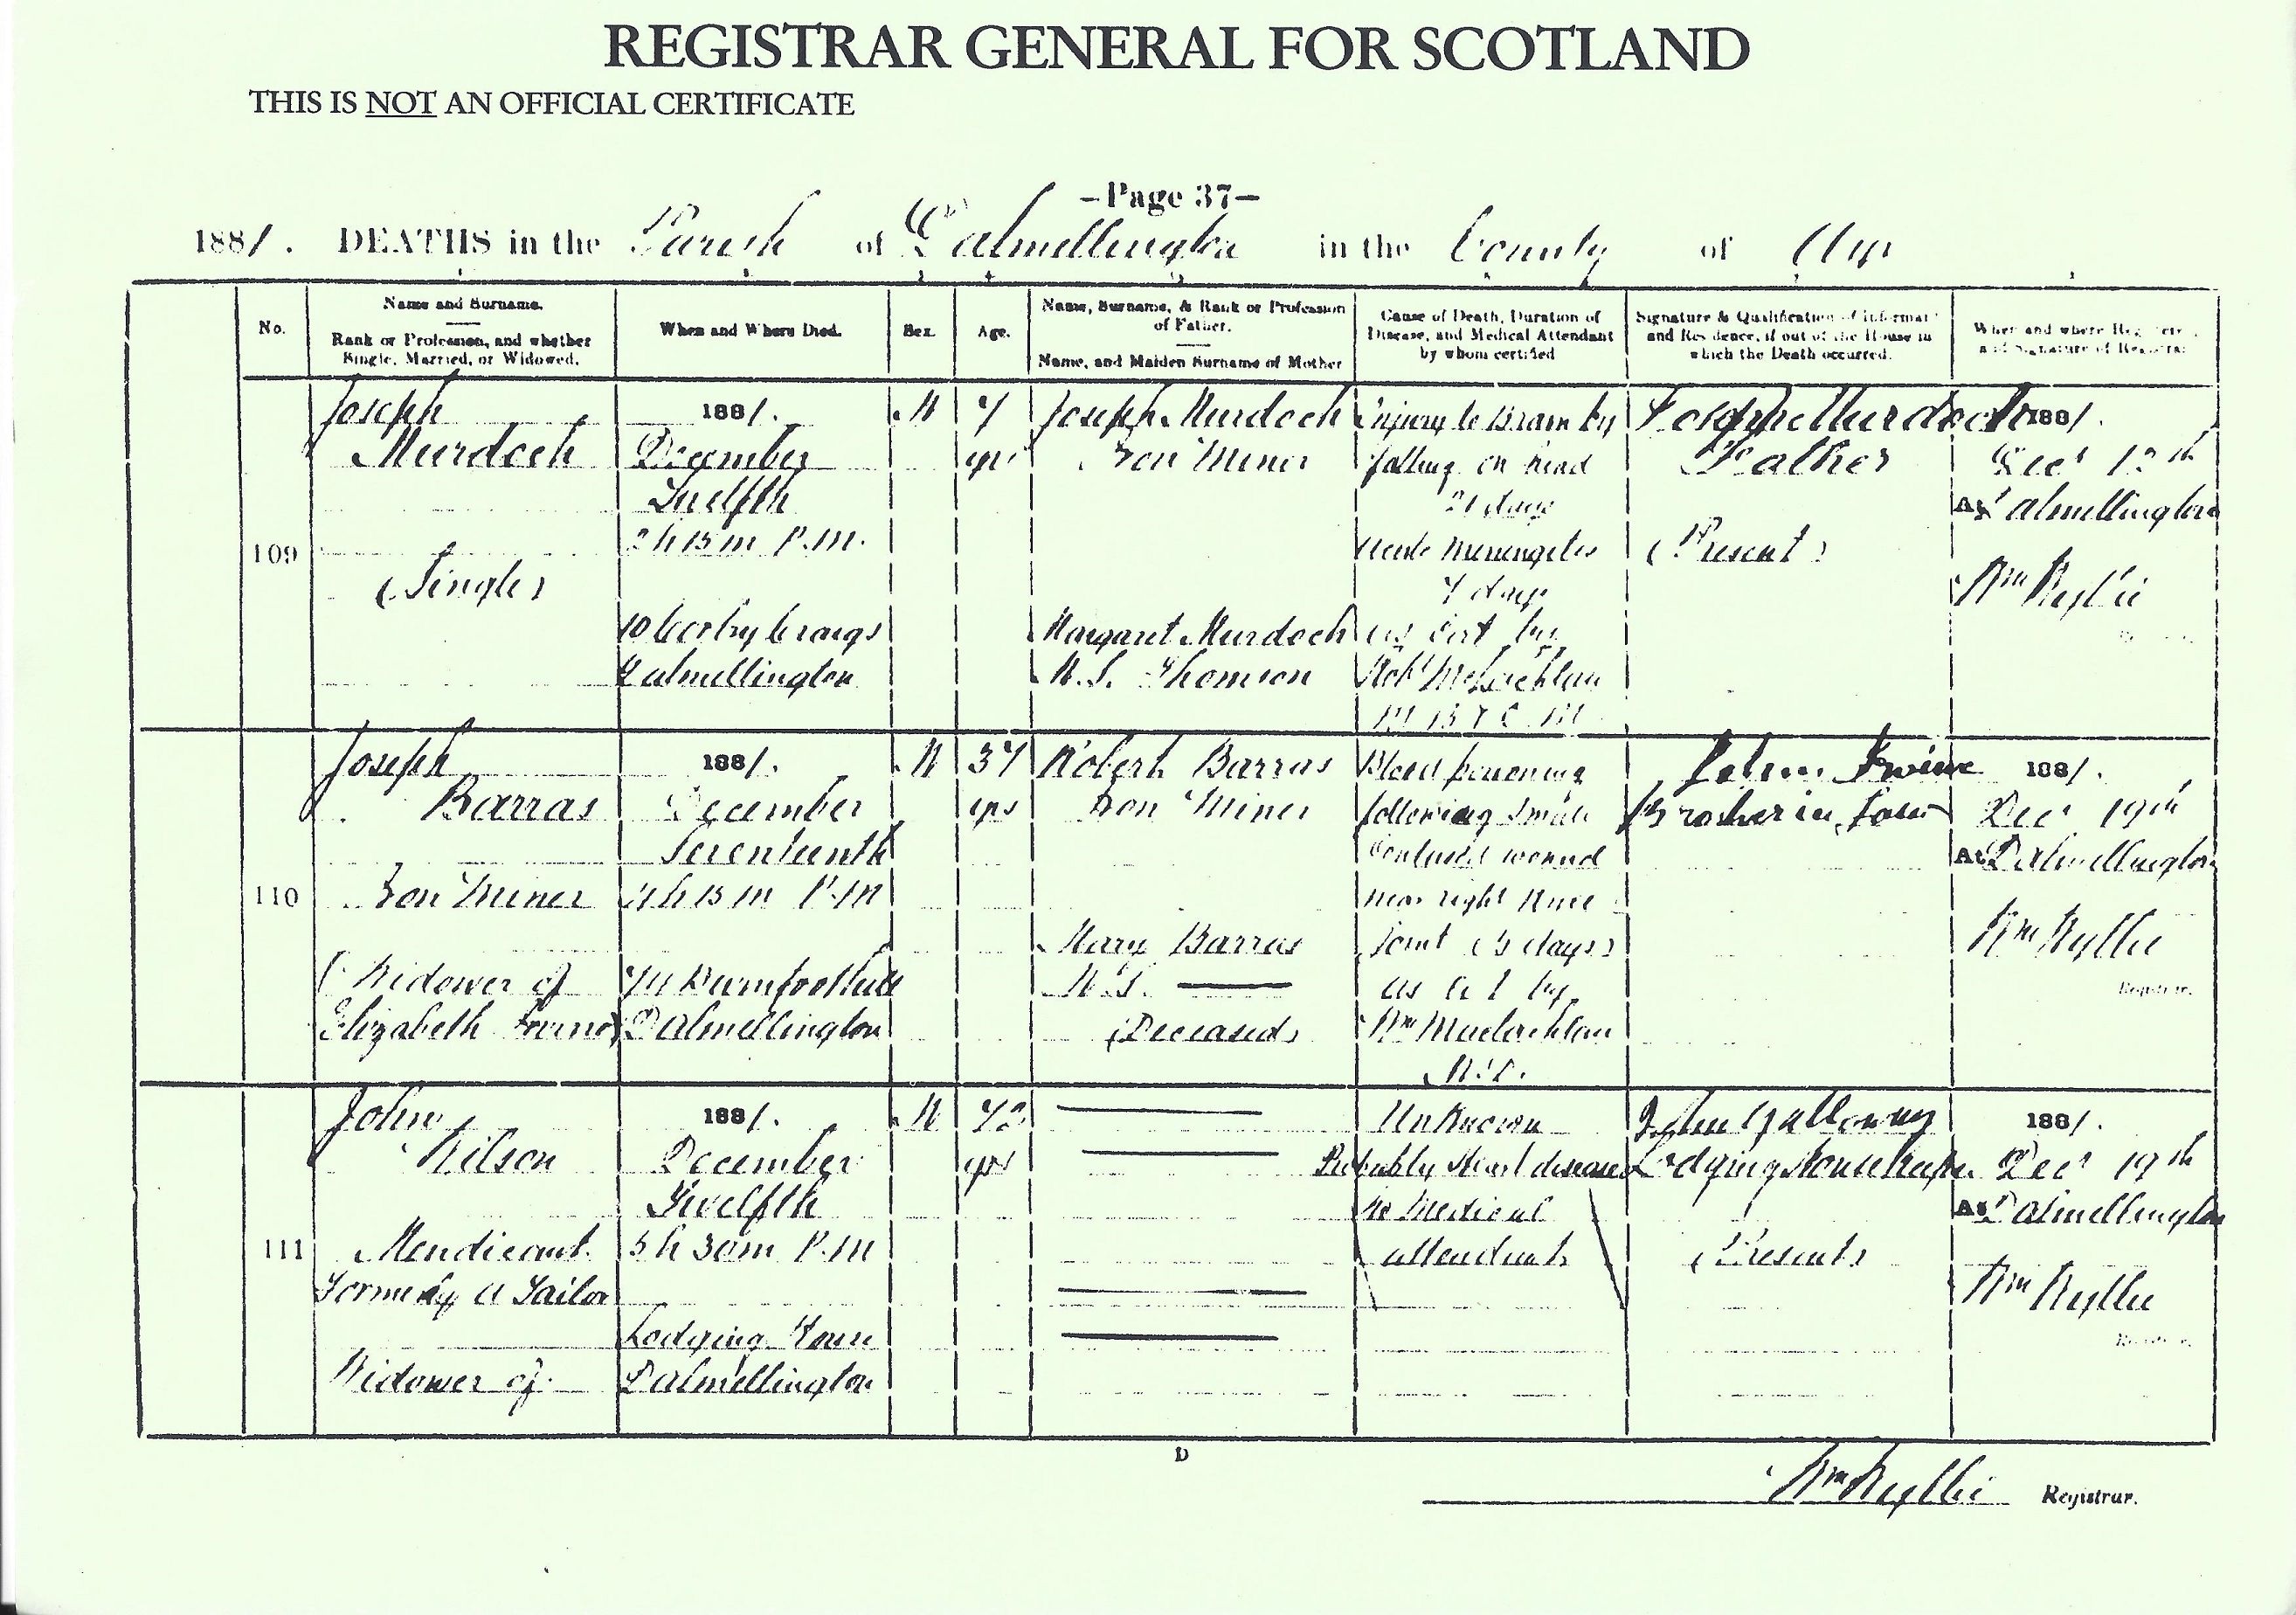 REGISTRAR GENERAL FOR SCOTLAND
THIS IS NOT AN OFFICIAL CERTIFICATE
-Page 37-
1881. DEATHS in the Parish of Dalmellington in the County of Ayr
No.
Name and Surname.
Rank or Profession, and whether
Single, Married, or Widowed.
When and Where Died.
Sex.
Age.
Name, Surname, & Rank or Profession
of Father.
Name, and Maiden Surname of Mother
Cause of Death, Duration of
Disease, and Medical Attendant
by whom certified
Signature & Qualification of Informant
and Residence, if out of the House in
which the Death occurred.
When and where Registered
and Signature of Registrar
109
Joseph
Murdoch
(Single)
1881.
December
Twelfth
2 h 15 m P.M.
10 Corby Craigs
Dalmellington
M
7
yrs
Joseph Murdoch
Iron Miner
Margaret Murdoch
M.S. Thomson
Injury to Brain by
falling on head
21 days
Acute Meningitis
7 days
as cert by
Robt McLachlan
M B & C M
Joseph Murdoch
Father
(Present)
1881.
Decr
At Dalmellington
Wm Wyllie
110
Joseph
Barras
Iron Miner
(Widower of
Elizabeth
1881.
December
Seventeenth
4 h 15 m P.M
Burnfoothill
Dalmellington
M
37
yrs
Robert Barras
Iron Miner
Mary Barras
M.S. ———
(Deceased)
Blood poisoning
following small
Contused wound
near right Knee
Joint days)
as by
Wm Maclachlan
John Irvine
Brother in Law
1881.
Decr 19th
At Dalmellington
Wm Wyllie
Registrar.
111
John
Wilson
Mendicant
Formerly a Tailor
Widower of
1881.
December
Twelfth
5 h 30m P.M
Lodging House
Dalmellington
M
72
yrs
Unknown
Probably Heart disease
No Medical
attendant
John Galloway
Lodging House Keeper
(Present)
1881.
Decr 19th
At Dalmellington
Wm Wyllie
Registrar.
D
Wm Wyllie Registrar.